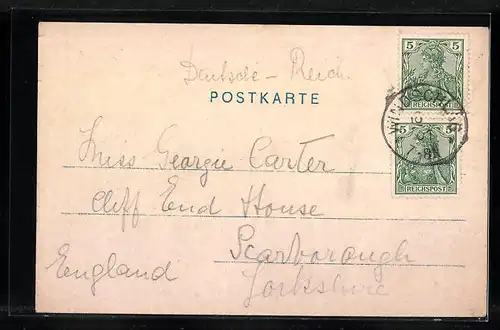 Deutsche-Reich
POSTKARTE
5 5
REICHSPOST
5 5
REICHSPOST
Miss Georgie Carter
Cliff End House
Scarborough
England Yorkshire